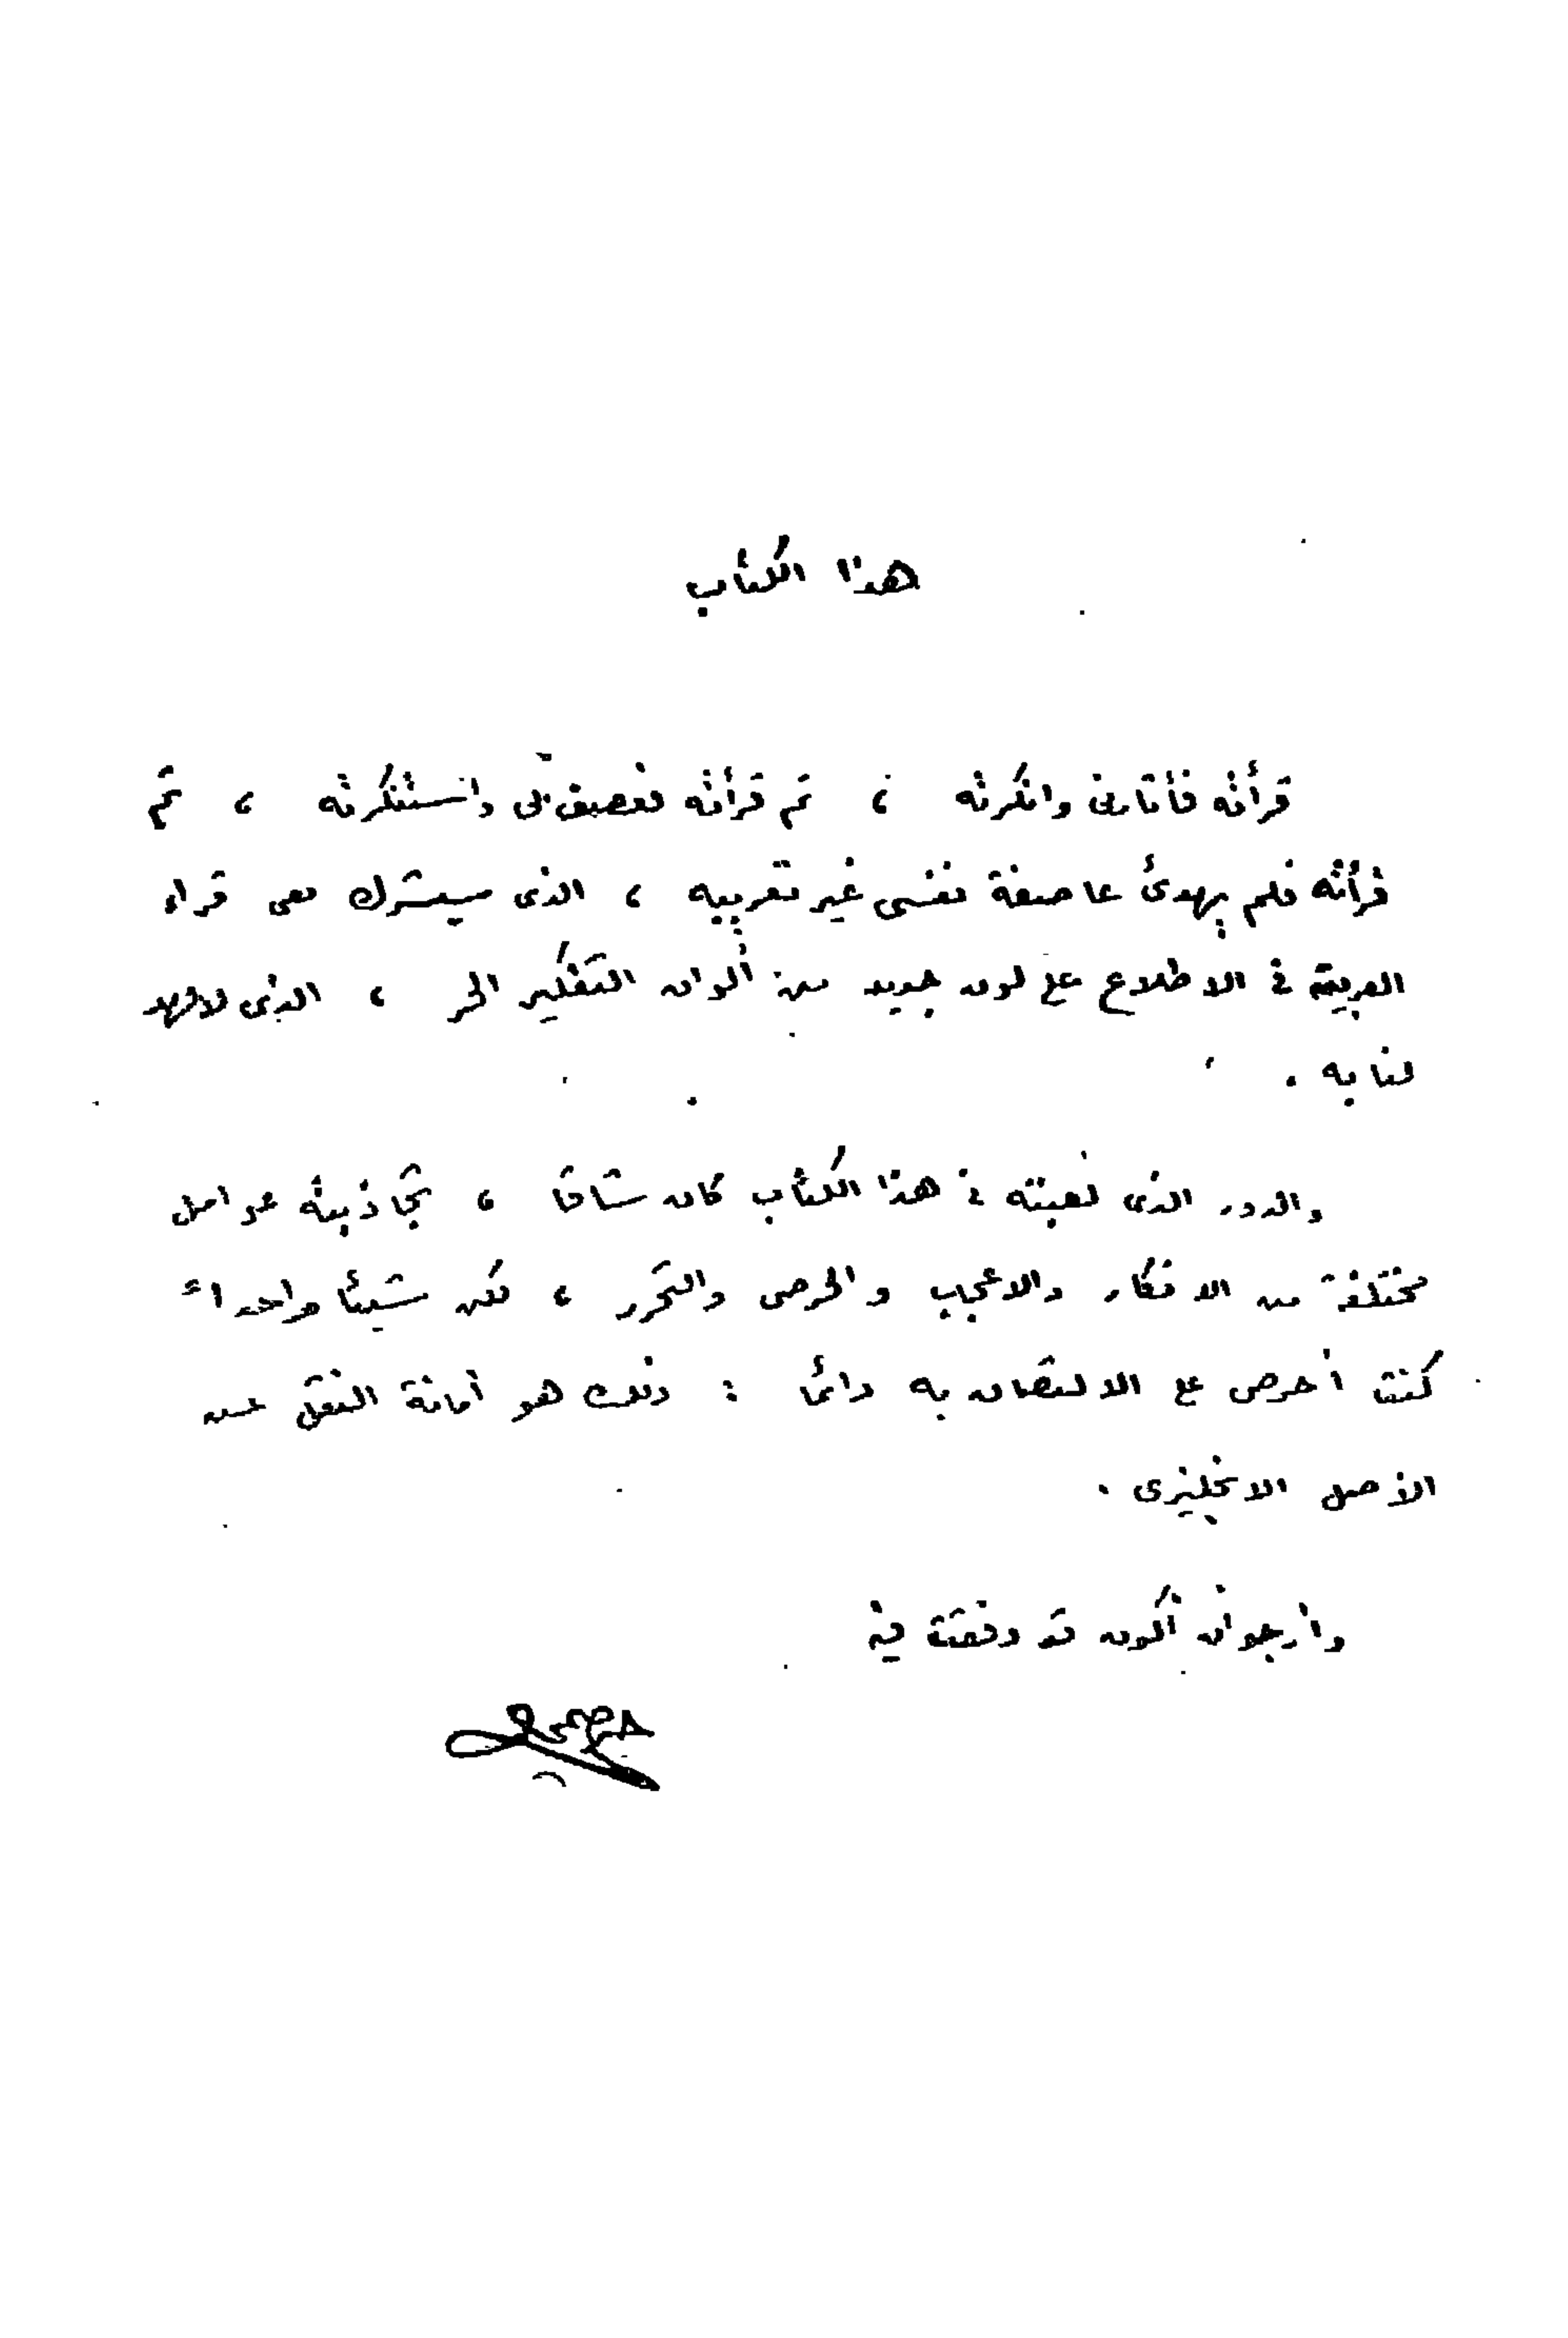 هذا الكتاب
قرأته فأثارنى وانكرته ، ثم قرأته فعصف بى واستنكرته ، ثم
قرأته فلم يهدئ عاصفة نفسى غير تعريبه ، الذى سيشرك معى قراء
العربية فى الاطلاع على لون جديد من ألوان التفكير الحر ، الذى لا عهد
لنا به .
والدور الذى لعبته فى هذا الكتاب كان شاقا ، تجاذبته عوامل
مختلفة من الانكار والاعجاب والحرص والتحرر ، لكن شيئا واحدا
كنت أحرص على الالتصاق به دائما : ذلك هو أمانة النقل عن
الأصل الانجليزى .
وأرجو ان أكون قد وفقت فيه